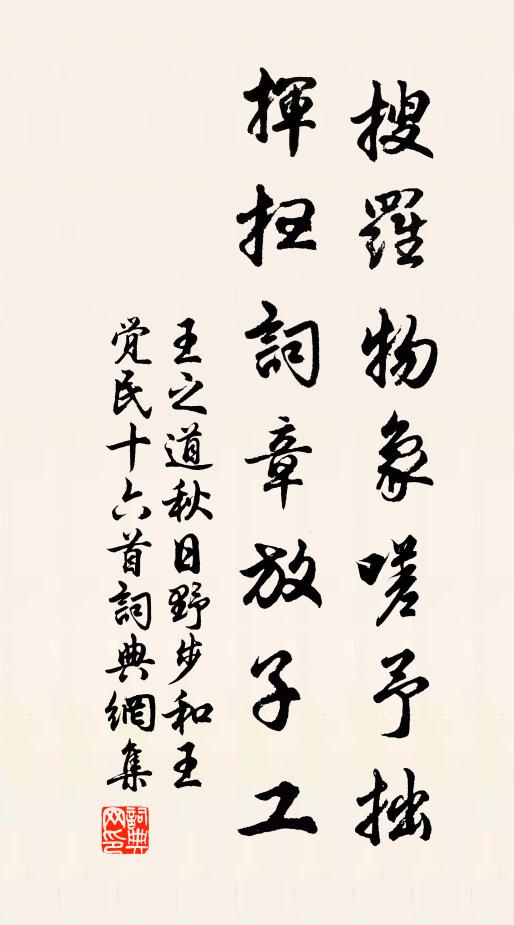 搜羅物象嗟予拙
揮抂詞章放子工
王之道秋日野步和王
覚民十六首詞典網集
詞典网印